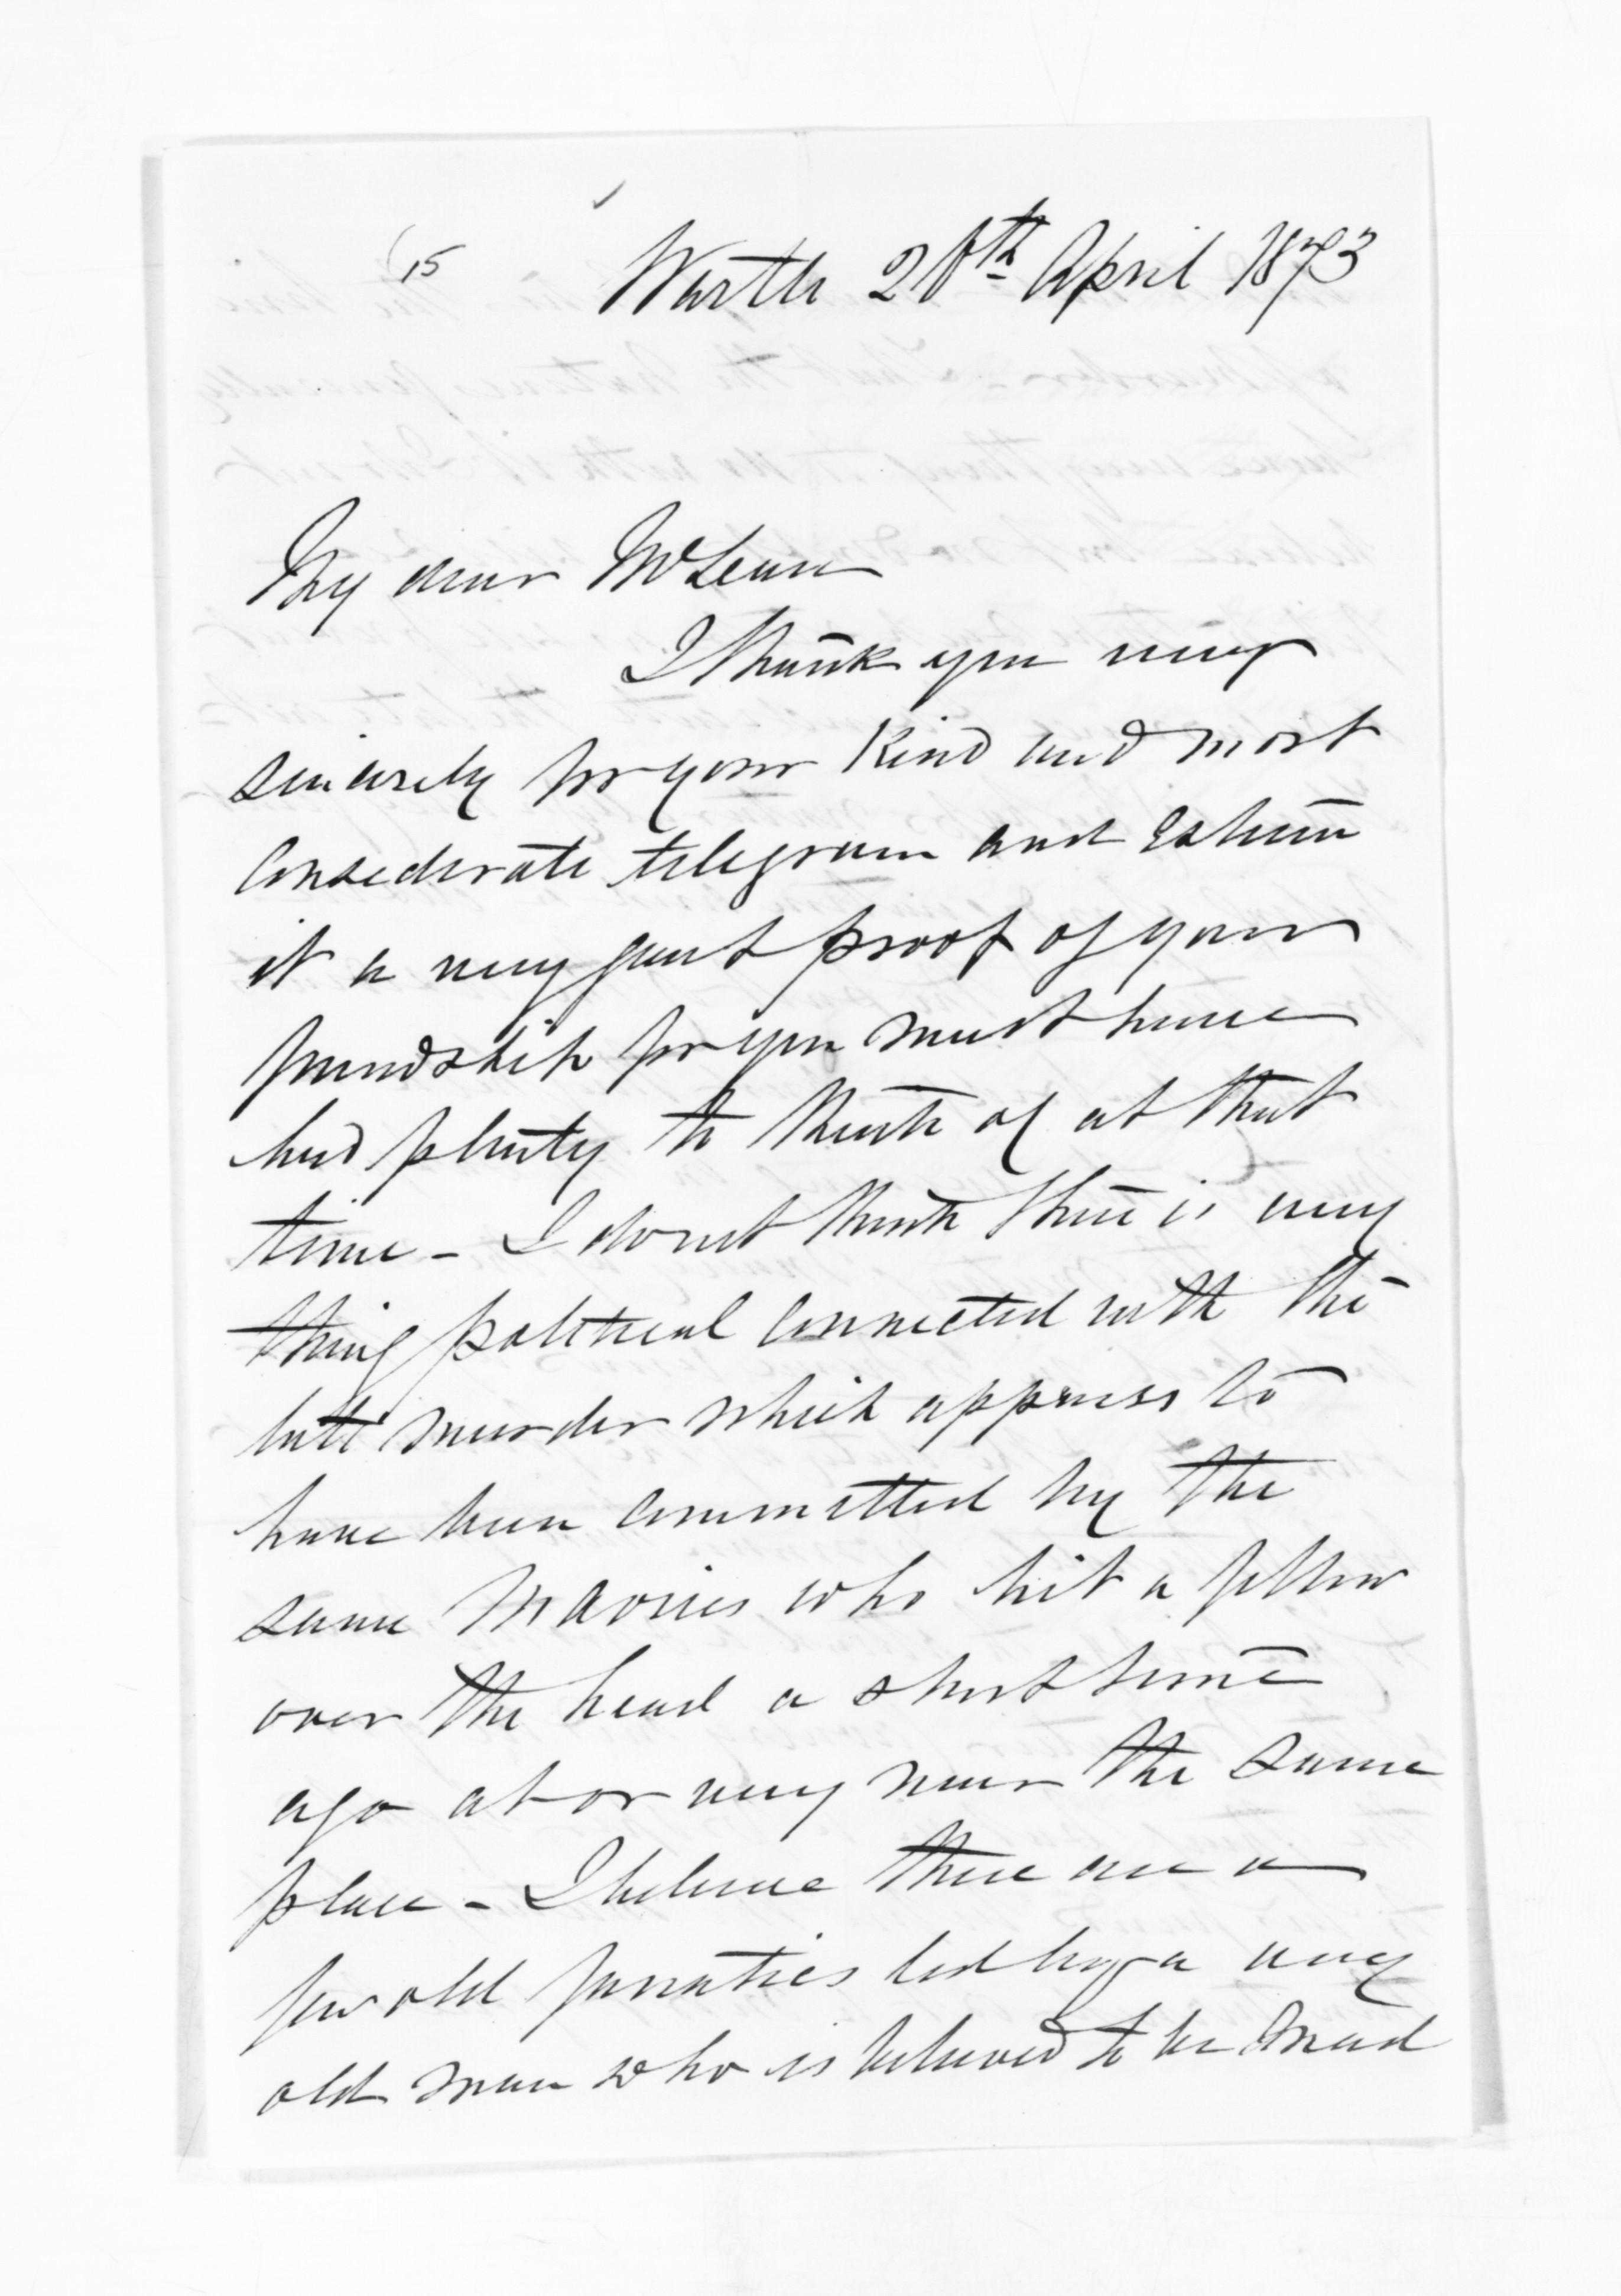 15
Wurth 28th April 1873
My dear McLean
I thank you very
sincerely for your kind and most
considerate telegram and esteem
it a very great proof of your
friendship for you must have
had plenty to think of at that
time - I do not think there is any
thing political connected with the
late murder which appears to
have been committed by the
same Maories who hit a fellow
over the head a short time
ago at or very near the same
place - I believe there are a
few old fanatics led by a very
old man who is believed to be mad